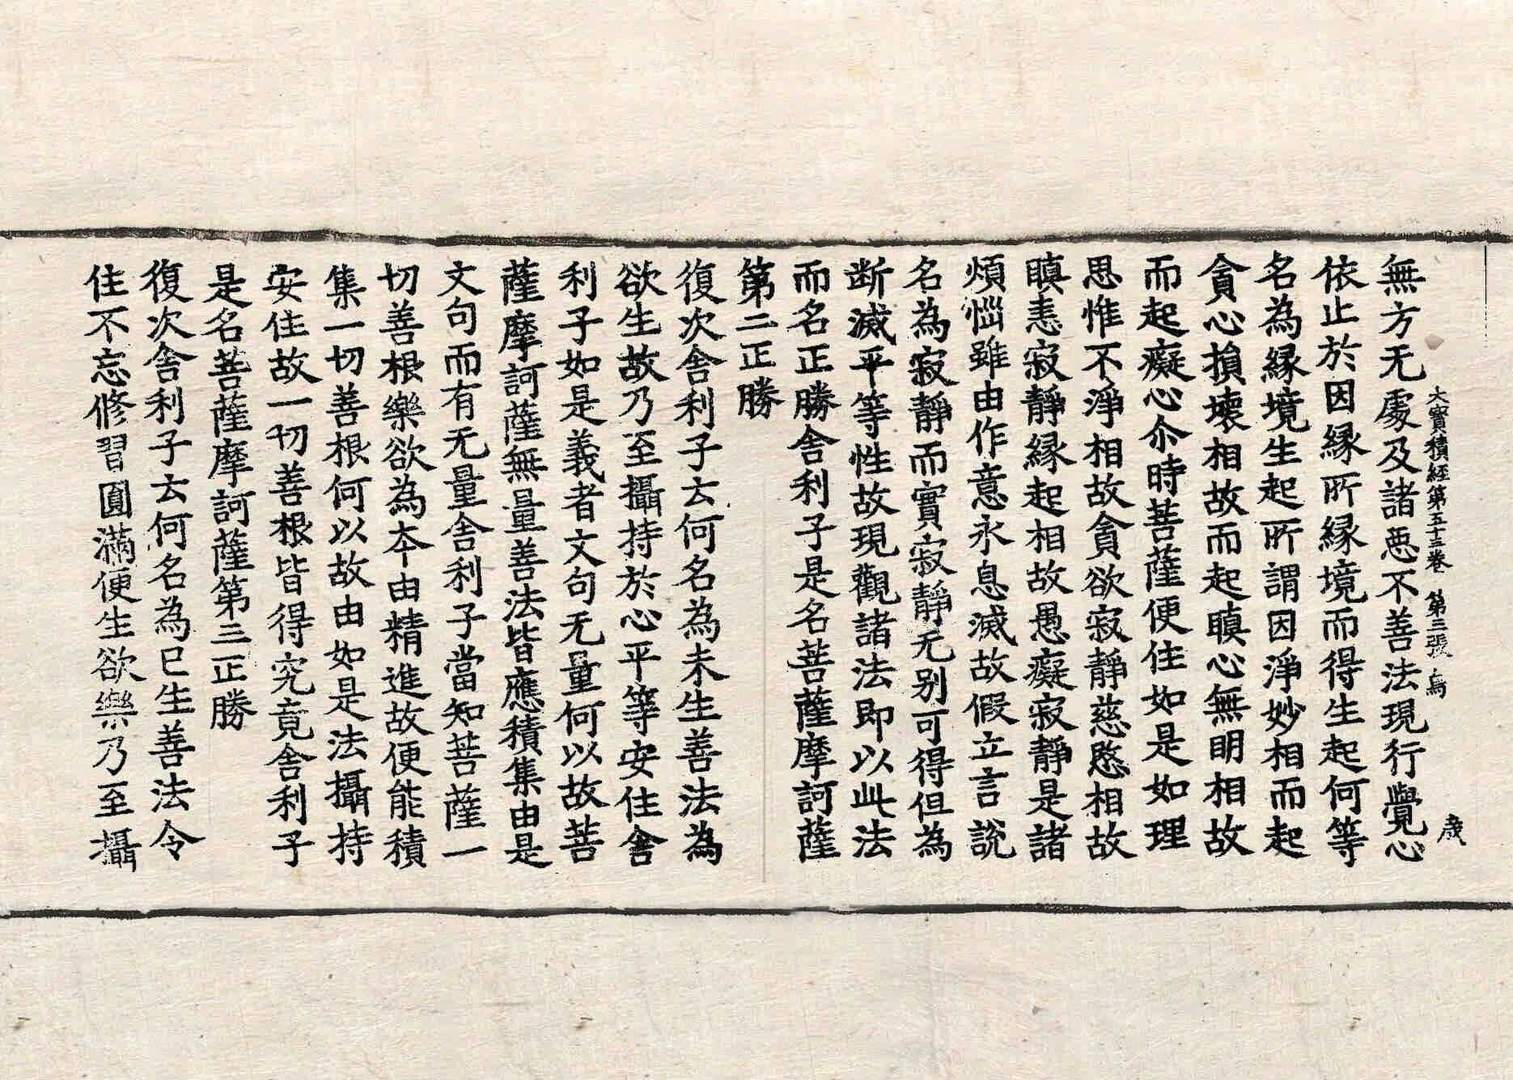 大寶積經第五十三卷 第三張 鳥
無方无處及諸惡不善法現行覺心
依止於因緣所緣境而得生起何等
名為緣境生起所謂因淨妙相而起
貪心損壞相故而起瞋心無明相故
而起癡心尒時菩薩便住如是如理
思惟不淨相故貪欲寂靜慈愍相故
瞋恚寂靜緣起相故愚癡寂靜是諸
煩惱雖由作意永息滅故假立言說
名為寂靜而實寂靜无别可得但為
断滅平等性故現觀諸法即以此法
而名正勝舍利子是名菩薩摩訶薩
第二正勝
復次舍利子云何名為未生善法為
欲生故乃至攝持於心平等安住舍
利子如是義者文句无量何以故菩
薩摩訶薩無量善法皆應積集由是
文句而有无量舍利子當知菩薩一
切善根樂欲為本由精進故便能積
集一切善根何以故由如是法攝持
安住故一切善根皆得究竟舍利子
是名菩薩摩訶薩第三正勝
復次舍利子云何名為已生善法令
住不忘修習圓滿便生欲樂乃至攝